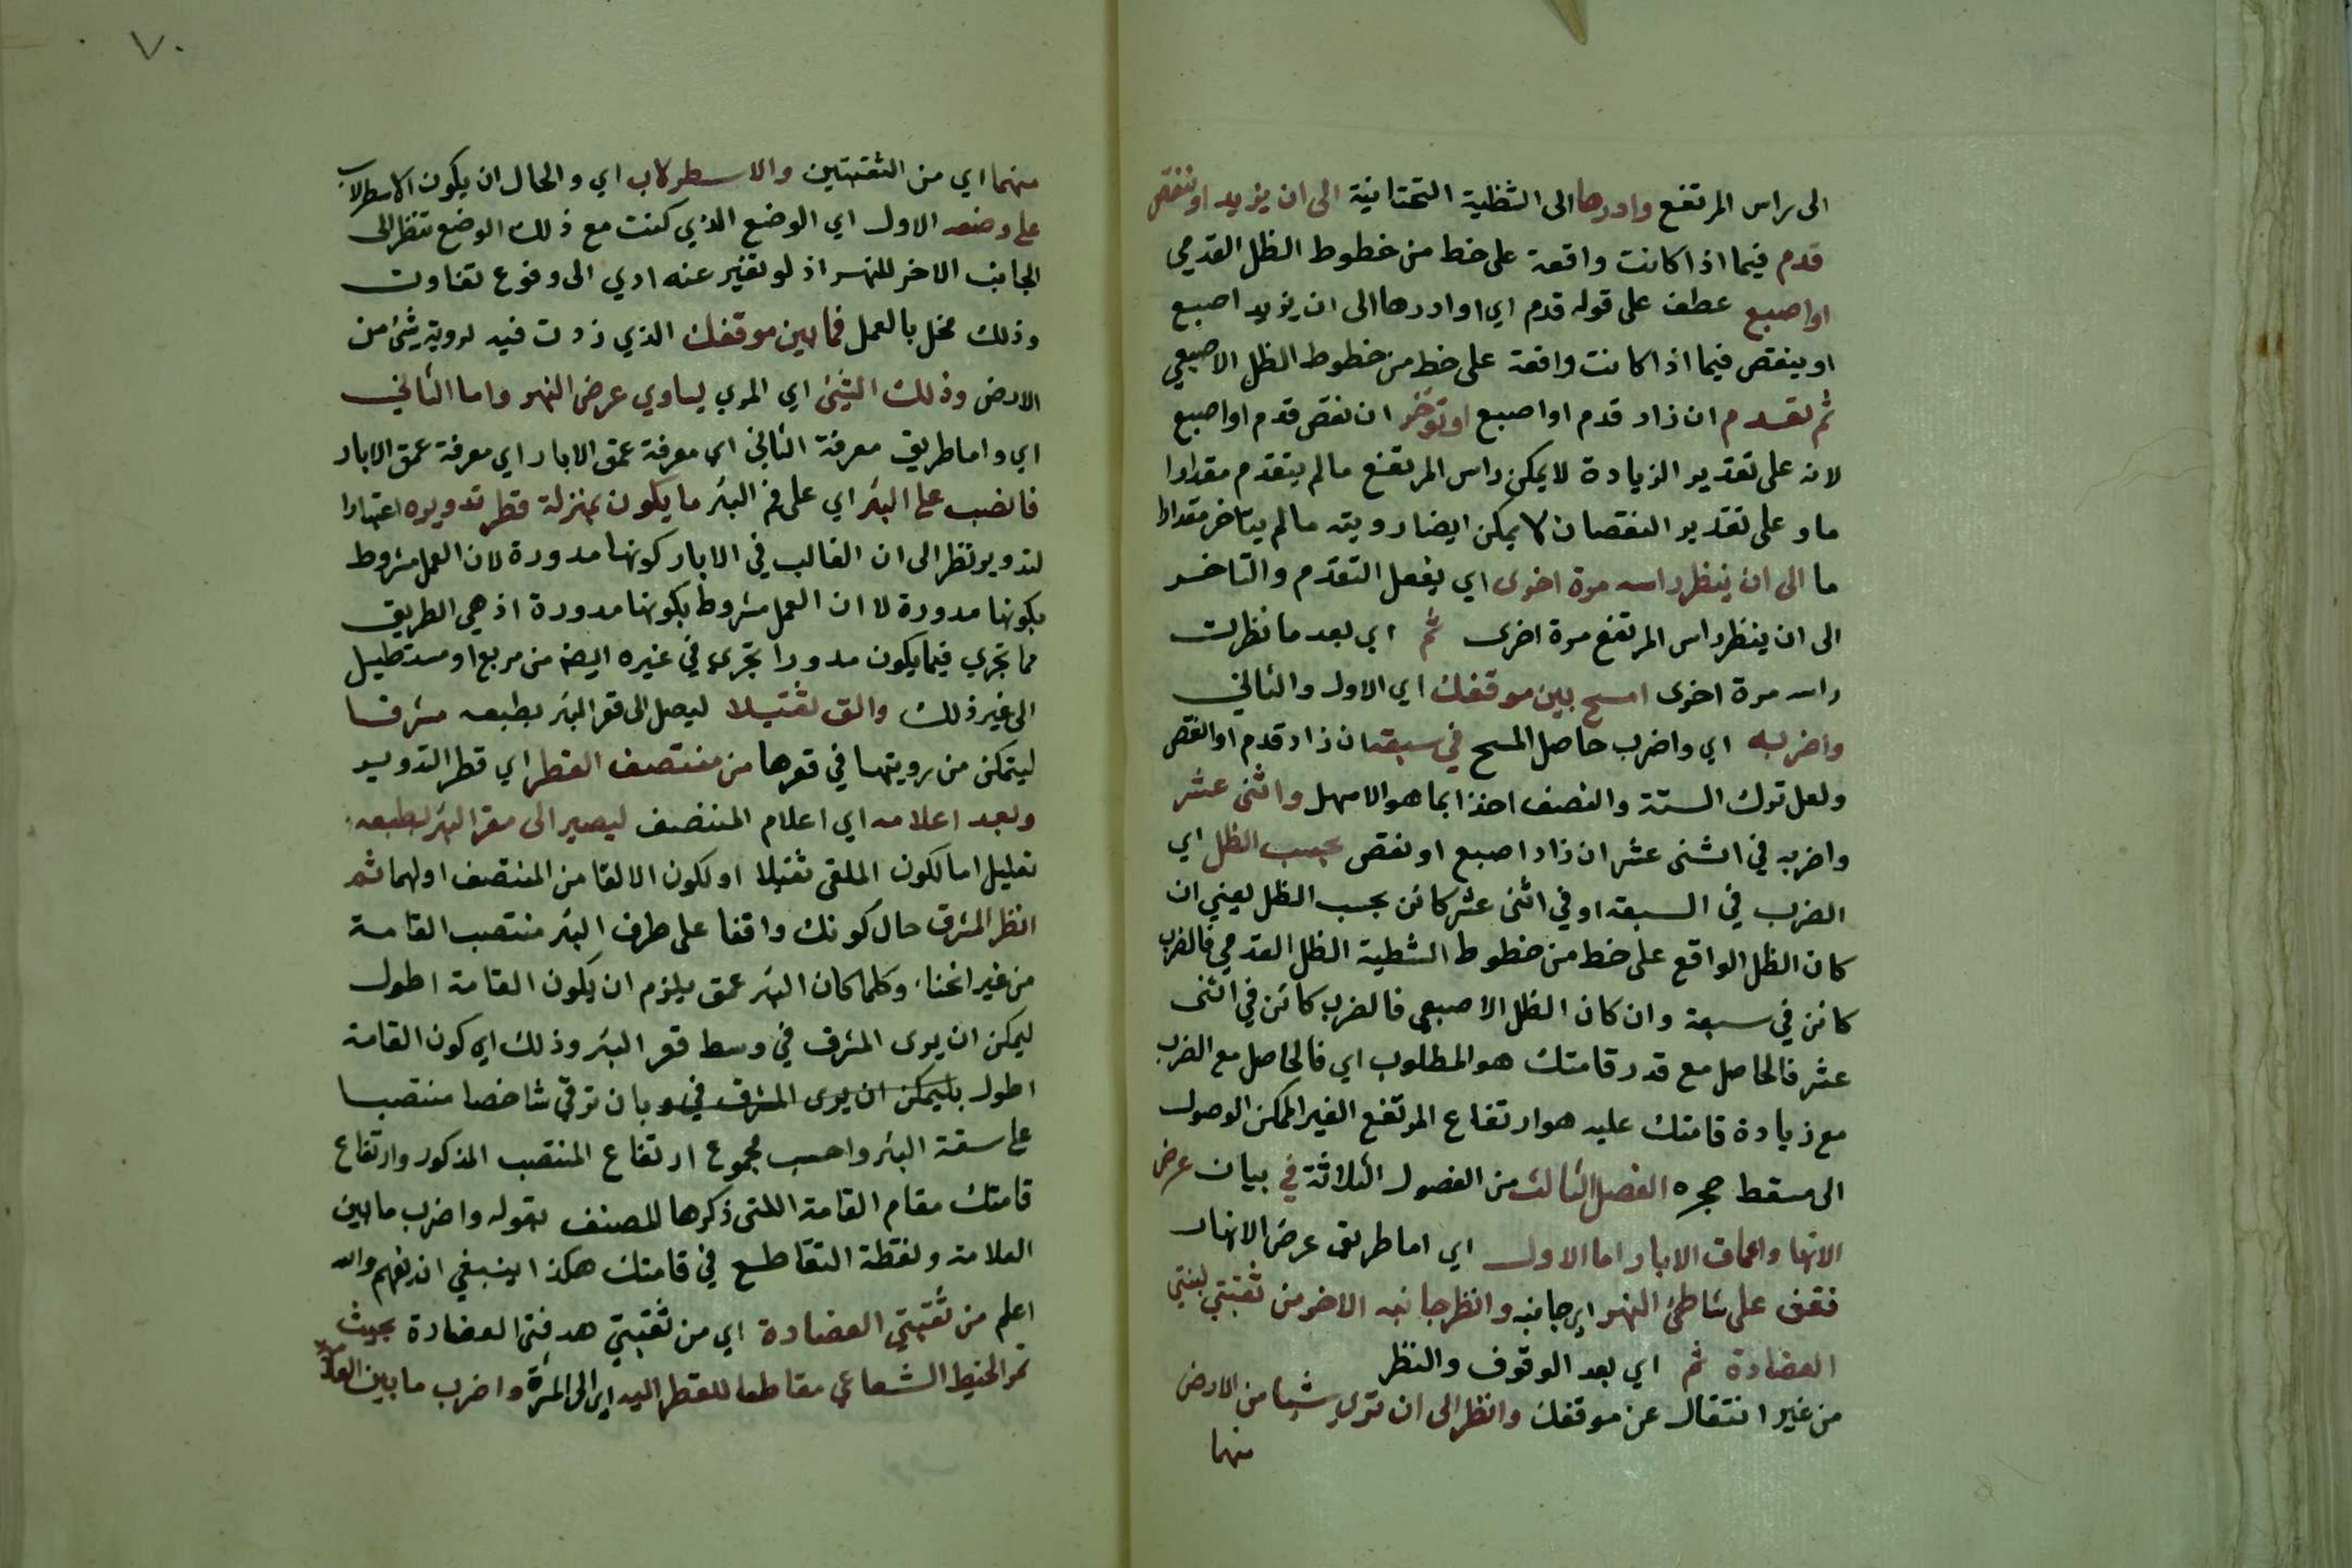 الى راس المرتفع وادرها الى الشظية التحتانية الى ان يزيد او ينقص
قدم فيما اذا كانت واقعة على خط من خطوط الظل القدمي
او اصبع عطف على قوله قدم اي او ادرها الى ان يزيد اصبع
او ينقص فيما اذا كانت واقعة على خط من خطوط الظل الاصبعي
ثم تقدم ان زاد قدم او اصبع او تؤخر ان نقص قدم او اصبع
لانه على تقدير الزيادة لا يمكن راس المرتفع ما لم يتقدم مقدارا
ما وعلى تقدير النقصان لا يمكن ايضا رويته ما لم يتاخر مقدارا
ما الى ان ينظر راسه مرة اخرى اي يفعل التقدم والتاخر
الى ان ينظر راس المرتفع مرة اخرى ثم اي بعد ما نظرت
راسه مرة اخرى امسح بين موقفك اي الاول والثاني
واضربه اي واضرب حاصل المسح في سبعة ان زاد قدم او نقص
ولعل ترك الستة والنصف اخذا بما هو الاسهل واثنى عشر
واضربه في اثنى عشر ان زاد اصبع او نقص بحسب الظل اي
الضرب في السبعة او في اثنى عشر كائن بحسب الظل يعني ان
كان الظل الواقع على خط من خطوط الشظية الظل القدمي فالضرب
كائن في سبعة وان كان الظل الاصبعي فالضرب كائن في اثنى
عشر فالحاصل مع قدر قامتك هو المطلوب اي فالحاصل مع الضرب
مع زيادة قامتك عليه هو ارتفاع المرتفع الغير الممكن الوصول
الى مسقط حجره الفصل الثالث من الفصول الثلاثة في بيان عرض
الانها واعماق الابار اما الاول اي اما طريق عرض الانهار
فقف على شاطئ النهر اي جانبه وانظر جانبه الاخر من ثقبتي لبنتي
العضادة ثم اي بعد الوقوف والنظر
من غير انتقال عن موقفك وانظر الى ان ترى شيا من الارض
منها
٧٠
منهما اي من الثقبتين والاسطرلاب اي والحال ان يكون الاسطرلاب
على وضعه الاول اي الوضع الذي كنت مع ذلك الوضع تنظر الى
الجانب الاخر للنهر اذ لو تغير عنه ادي الى وقوع تفاوت
وذلك مخل بالعمل فما بين موقفك الذي زدت فيه لروية شئ من
الارض وذلك الشئ اي المري يساوي عرض النهر واما الثاني
اي واما طريق معرفة الثاني اي معرفة عمق الابار اي معرفة عمق الابار
فانصب على البئر اي على فم البئر ما يكون بمنزلة قطر تدويره اعتبارا
لتدوير نظرا الى ان الغالب في الابار كونها مدورة لان العمل مشروط
بكونها مدورة لا ان العمل مشروط بكونها مدورة اذ هي الطريق
مما تجري فيما يكون مدورا تجري في غيره ايضا من مربع او مستطيل
الى غير ذلك والق ثقيلا ليصل الى قعر البئر بطبعه مشرفا
ليتمكن من رويتها في قعرها من منتصف القطر اي قطر التدوير
وبعد اعلامه اي اعلام المنتصف ليصير الى مقر البئر بطبعه
تعليل اما لكون الملقى ثقيلا او لكون الالقا من المنتصف اولهما ثم
انظر المشرق حال كونك واقفا على طرف البئر منتصب القامة
من غير انحنا وكلما كان البئر عمق يلزم ان يكون القامة اطول
ليمكن ان يرى المشرق في وسط قعر البئر وذلك اي كون القامة
اطول بليمكن ان يرى المشرق في و بان ترقى شاخصا منتصبا
على سقة البئر واحسب مجموع ارتفاع المنتصب المذكور وارتفاع
قامتك مقام القامة اللتى ذكرها المصنف بقوله واضرب ما بين
العلامة ونقطة التقاطع في قامتك هكذا ينبغي ان يفهم والله
اعلم من ثقبتي العضادة اي من ثقبتي هدفتى العضادة بحيث
تمر الخيط الشعاعي مقاطعا للقطر اليه اي الى المرة واضرب ما بين العلامة